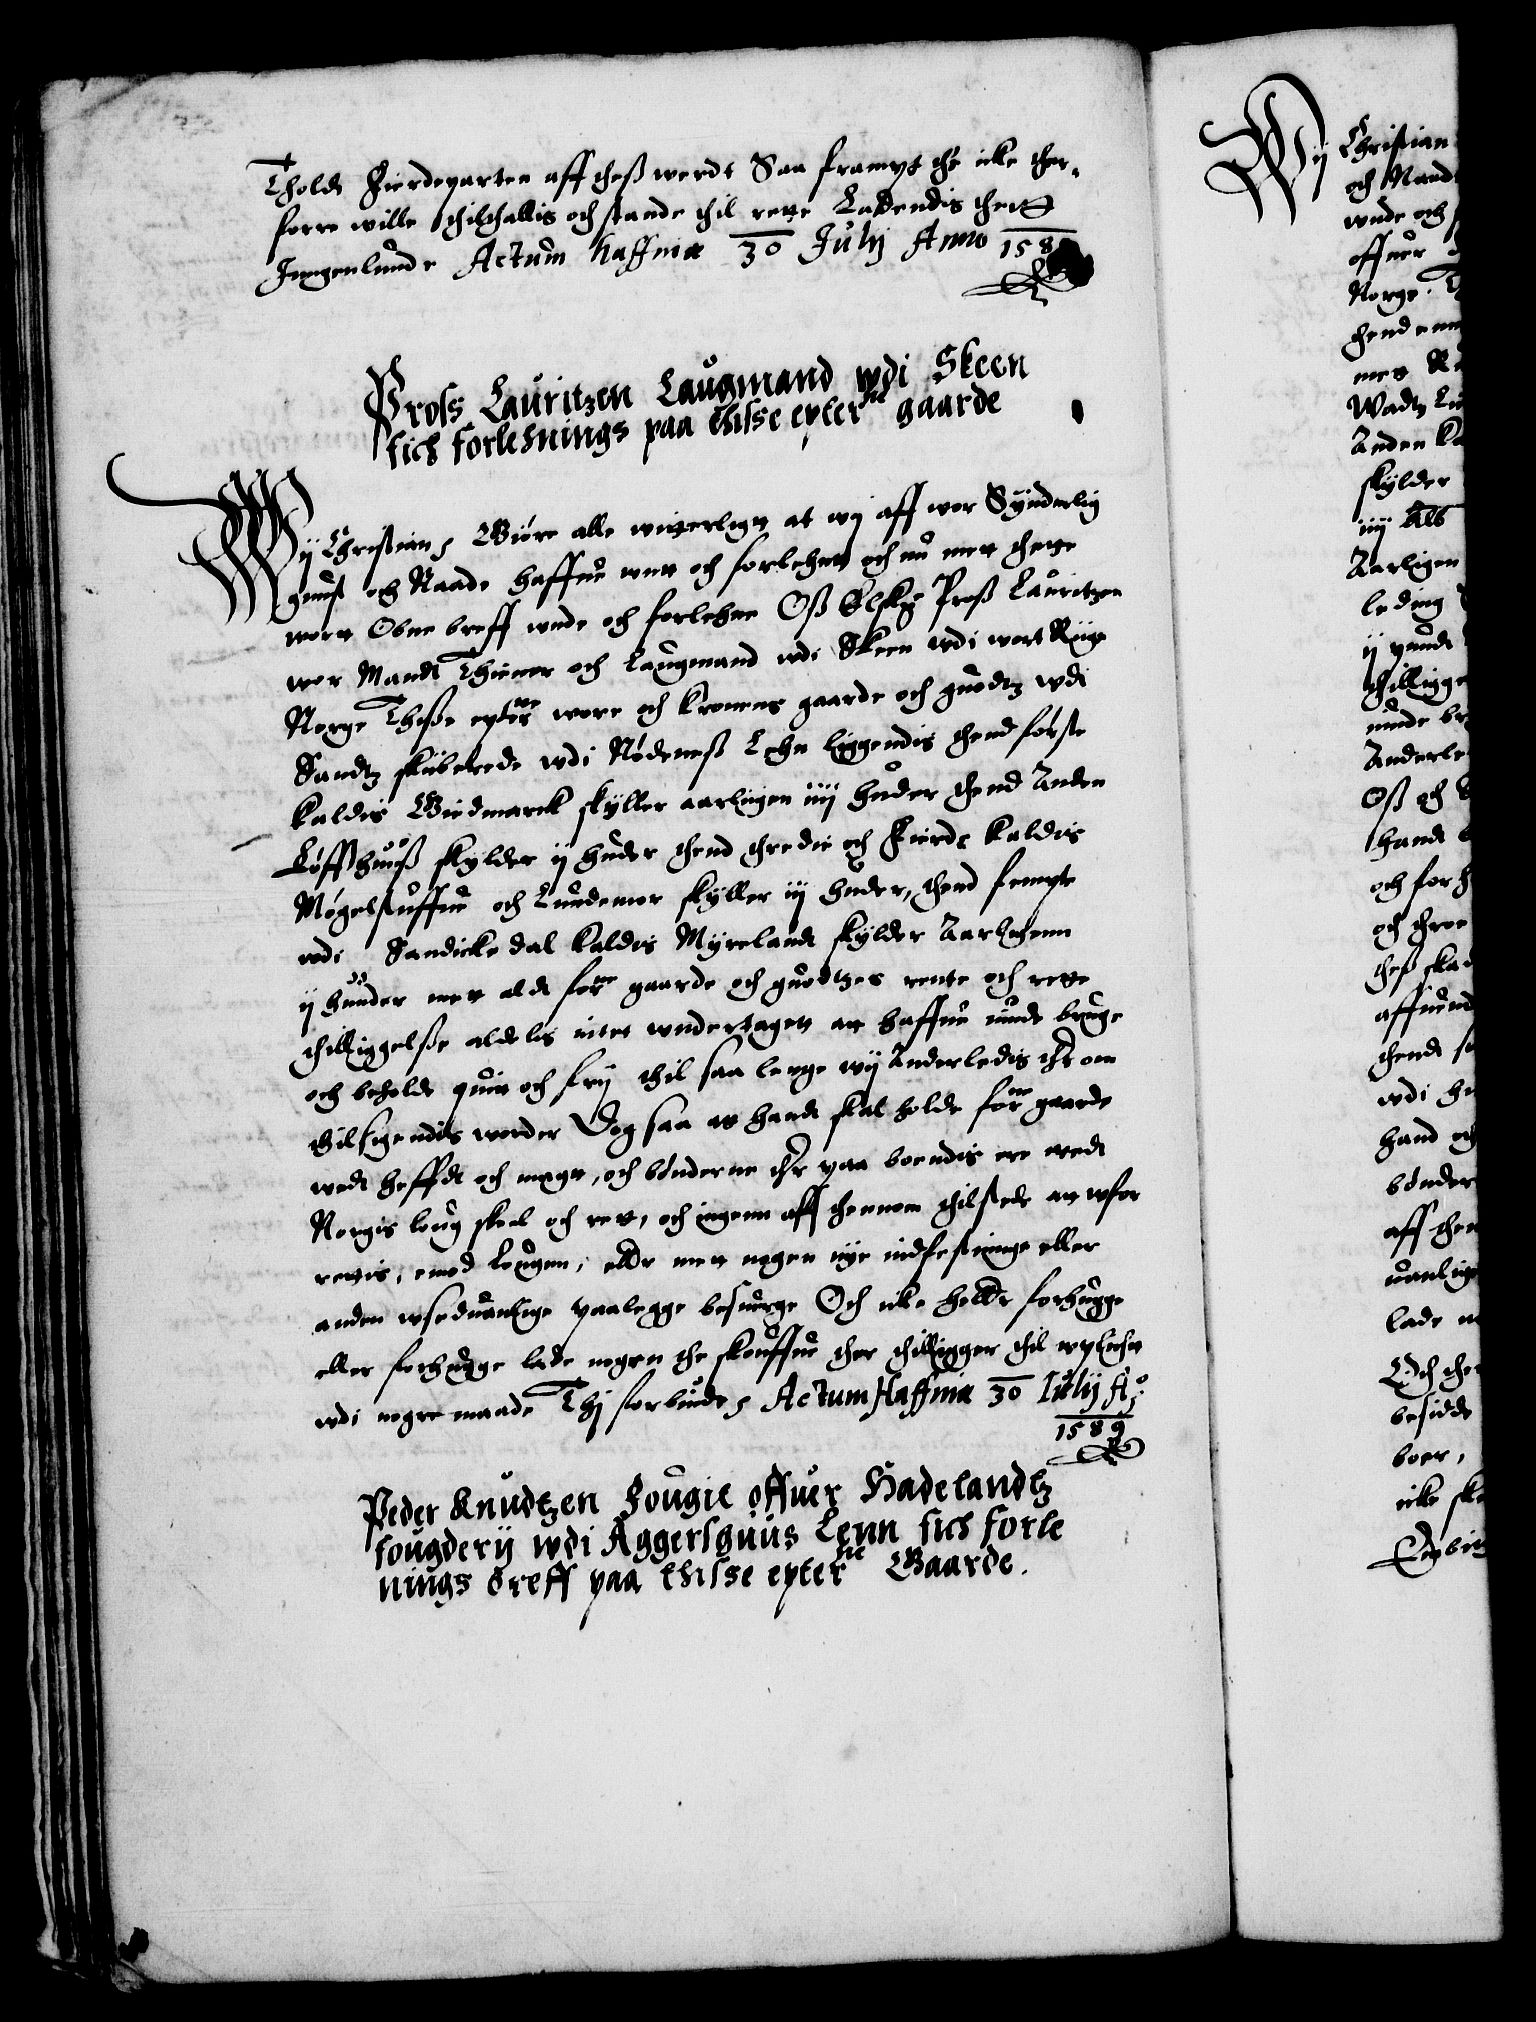 Tholdt Fierdeparten aff thess werdt Saaframpt the icke ther¬
forre wille thilthallis och stande thil rette Ladendis thett
Inngenlunde Actum Haffniæ 30 Julij Anno 158
Pross Lauritzen Laugmand wdi Skeen
fich forlehnings paa thisse epterne gaarde
Wij Christian Giøre alle witterligtt at wij aff wor Synderlig
gunst och Naade haffue untt och forlehntt och nu mett thette
wortt Obne breff unde och forlehne Oss Elske Pross Lauritzen
wor Mandt Thiener och Laugmand wdi Skeen wdi wort Riige
Norge Thisse epterne wore och Kronens gaarde och guodtz wdi
Sandtz skiberede wdi Nødeness Lehn liggendis thend første
kaldis Widmarck skyller aarligen iiij huder thend Anden
Løffthuuss skylder ij huder thend thredie och Fierde kaldis
Møgelstuffue och Lundemor skyller iij huder, thend fempte
wdi Sandicke dal kaldis Myrelandt skylder Aarligenn
ij hunder mett aldt forne gaarde och guodtzes rente och rette
thilliggelsse aldelis inttet undertagett att haffue nyde bruge
och beholde quit och frij thil saa lenge wij Anderledis ther om
thilsigendis worder Dog saa att handt skal holde forne gaarde
wedt heffdt och magtt, och bønderne ther paa boendis ere wedt
Norgis loug skeel och rett, och ingenn aff thennom thilstede att wfor
rettis, emod Lougen, eller mett nogen nye indfestninge eller
anden wseduanlige paalegge besuerge Och icke heller forhugge
eller forhugge lade nogen the skouffue ther thilligger thil upligtt
wdi nogre maade Thij forbiude Actum Haffniæ 30 Iulij Ao
1589
Peder Knudtzen Fougit offuer Hadelandtz
fougderij wdi Aggershuus Lenn fich forle
nings breff paa thisse epterne Gaarde.
Wij Christian
och Naad
unde och
offuer
Norge.
thend
mett
Wadtz
Anden
skylder
iiij
Aarligen
leding
ij pundt
thilligge
nyde br
Anderle
Oss och
handt
och forh
och
thess skad
affuend
thend
wdi
hand och
bønder
aff then
uanlige
lade
Och ther
besidde
boer,
icke ske